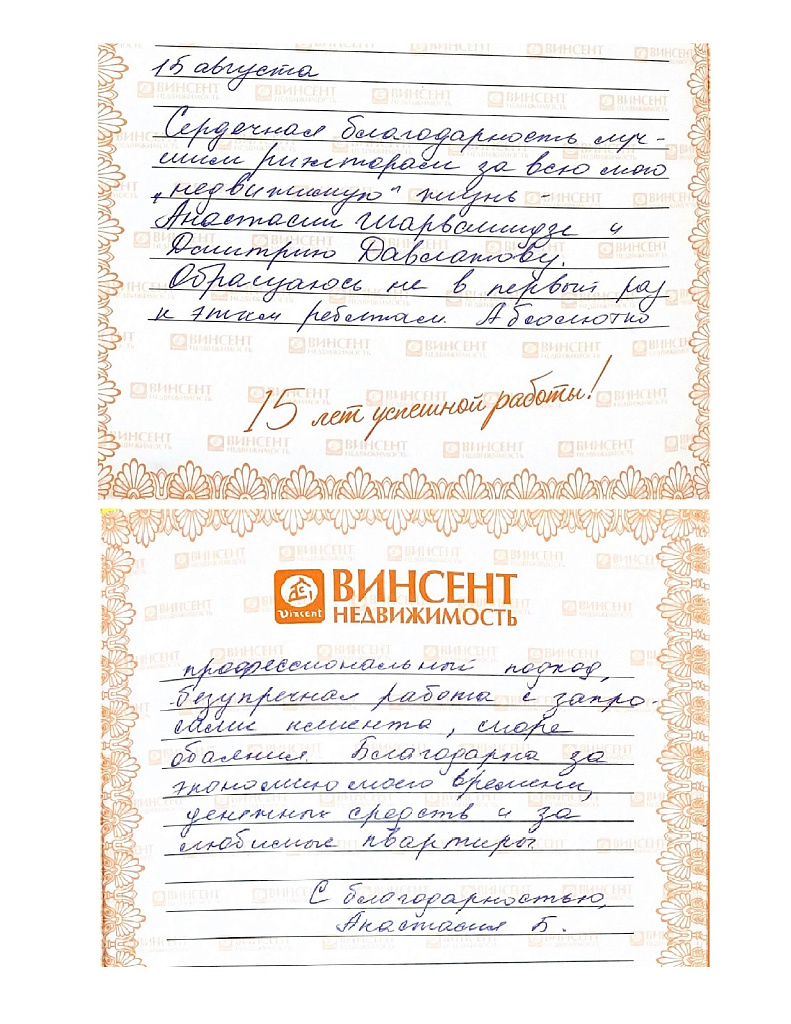 15 августа
Сердечная благодарность луч-
шим риэлторам за всю мою
„недвижимую" жизнь -
Анастасии Шарвашидзе и
Дмитрию Давлатову.
Обращаюсь не в первый раз
к этим ребятам. Абсолютно
15 лет успешной работы!
ВИНСЕНТ
НЕДВИЖИМОСТЬ
Vincent
профессиональный подход,
безупречная работа с запро-
сами клиента, море
обаяния. Благодарна за
экономию моего времени,
денежных средств и за
любимые квартиры.
С благодарностью,
Анастасия Б.